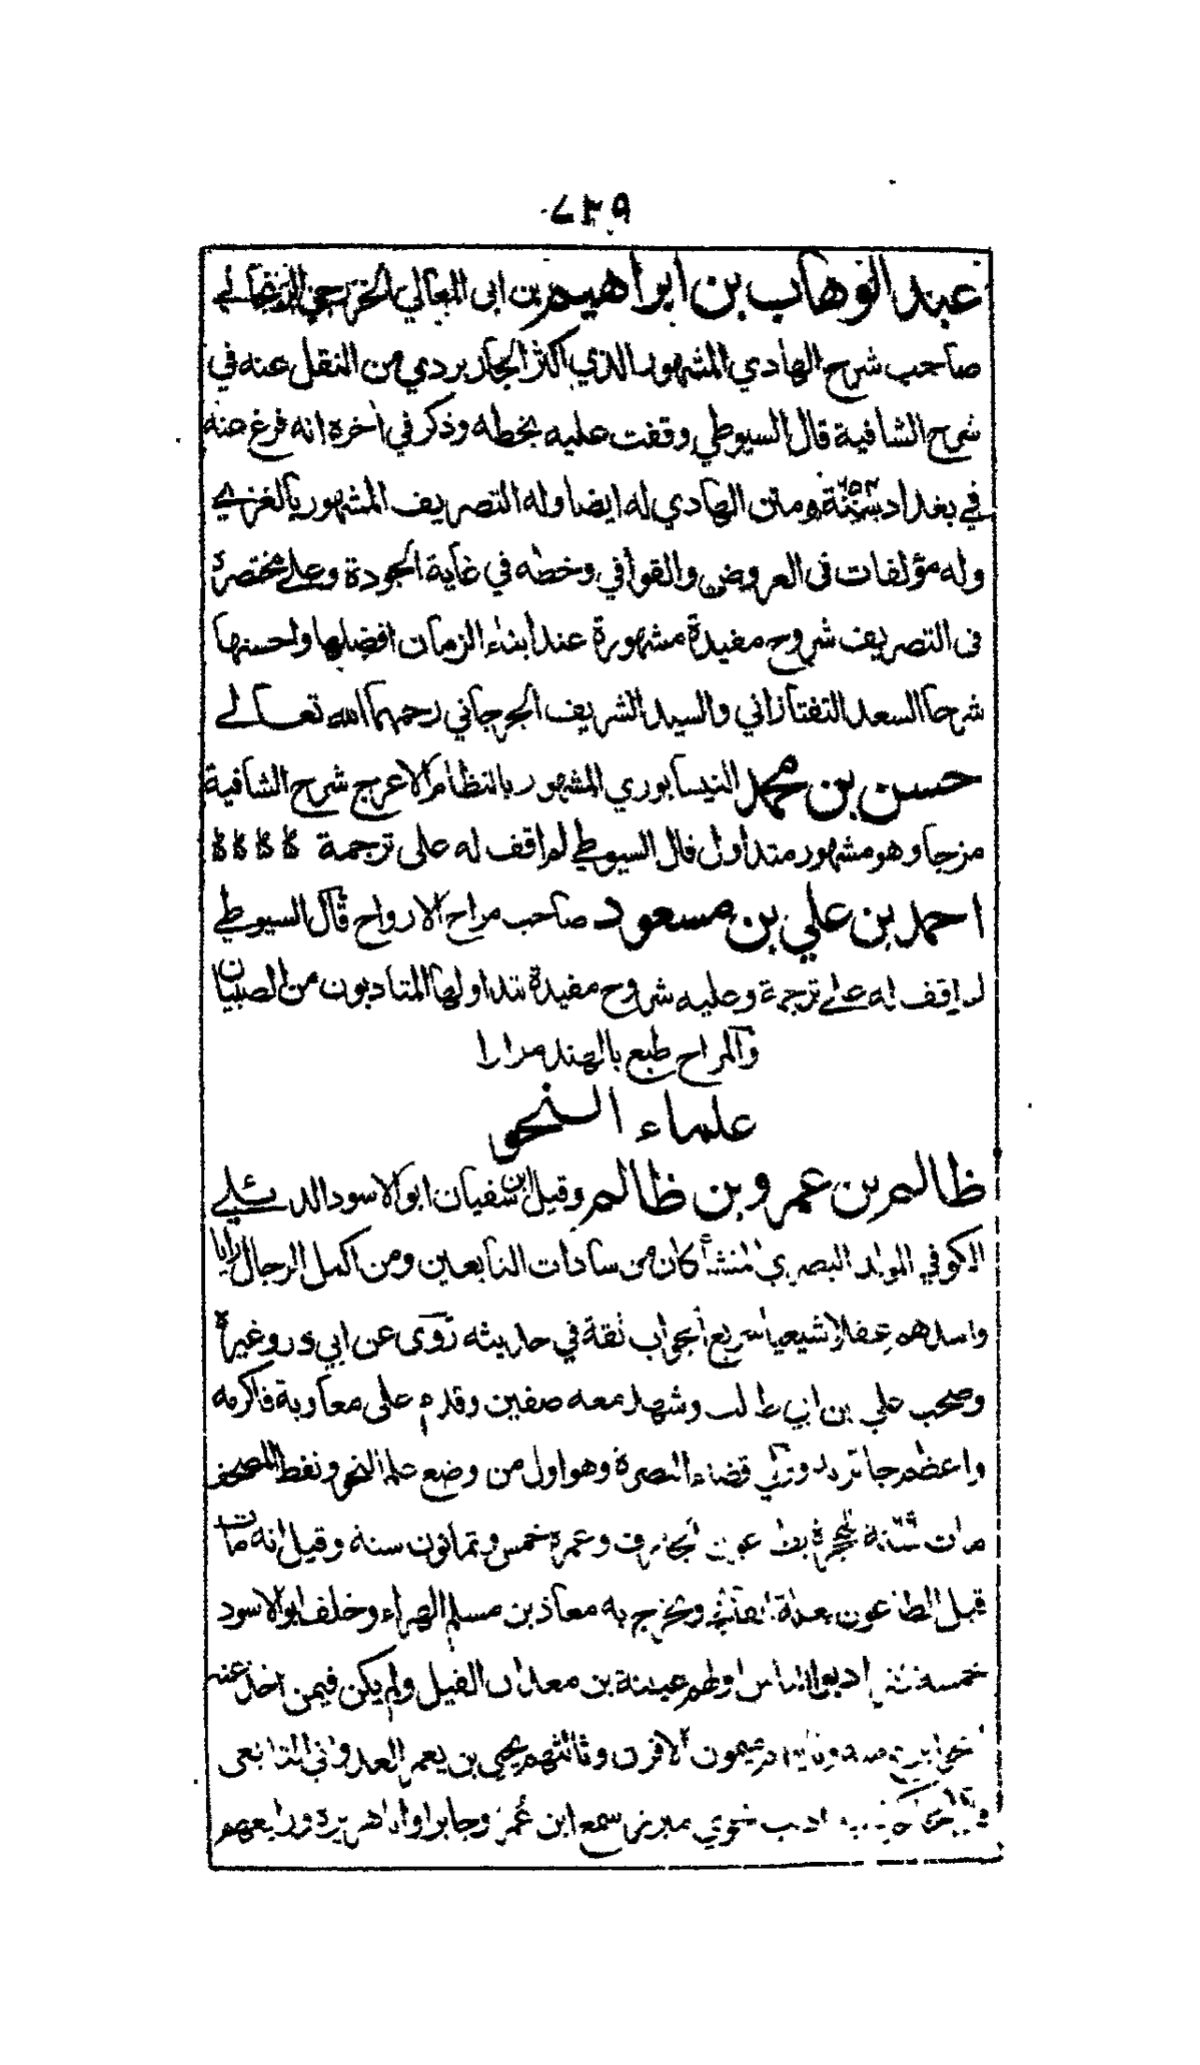 عبد الوهاب بن ابراهيم بن ابى المعالي الخزرجى الزنجاني
صاحب شرح الهادي المشهور الذي اكثر الجاربردي من النقل عنه في
شرح الشافية قال السيوطي وقفت عليه بخطه وذكر في اخره انه فرغ منه
في بغداد سنة ومتن الهادي له ايضا وله التصريف المشهور بالغزي
وله مؤلفات فى العروض والقوافي وخطه في غاية الجودة وعلى مختصره
فى التصريف شروح مفيدة مشهورة عند ابناء الزمان افضلها واحسنها
شرحا السعد التفتازاني والسيد الشريف الجرجاني رحمهما الله تعالى
حسن بن محمد النيسابوري المشهور بالنظام الاعرج شرح الشافية
مزجا وهو مشهور متداول قال السيوطي لم اقف له على ترجمة
احمد بن علي بن مسعود صاحب مراح الارواح قال السيوطي
لم اقف له على ترجمة وعليه شروح مفيدة تتداولها المتادبون من الصبيان
والمراح طبع بالهند مرارا
علماء النحو
ظالم بن عمرو بن ظالم وقيل ابن سفيان ابو الاسود الدئلي
الكوفي المولد البصري المنشأ كان من سادات التابعين ومن اكمل الرجال رايا
واسدهم عقلا شيعيا سريع الجواب ثقة في حديثه روى عن ابي ذر وغيره
وصحب علي بن ابي طالب وشهد معه صفين وقدم على معاوية فاكرمه
واعظم جائزته وولي قضاء البصرة وهو اول من وضع علم النحو ونقط المصحف
مات سنة للهجرة بطاعون الجارف وعمره خمس وثمانون سنة وقيل انه مات
قبل الطاعون بعلة وتخرج به معاذ بن مسلم الهراء وخلف ابو الاسود
خمسة ادبوا الناس اولهم عيينة بن معدان الفيل ولم يكن فيمن اخذ عنه
ميمون الاقرن وثالثهم يحيى بن يعمر العدواني التابعي
اديب نحوي مبرز سمع ابن عمر وجابرا وابا هريرة ورابعهم